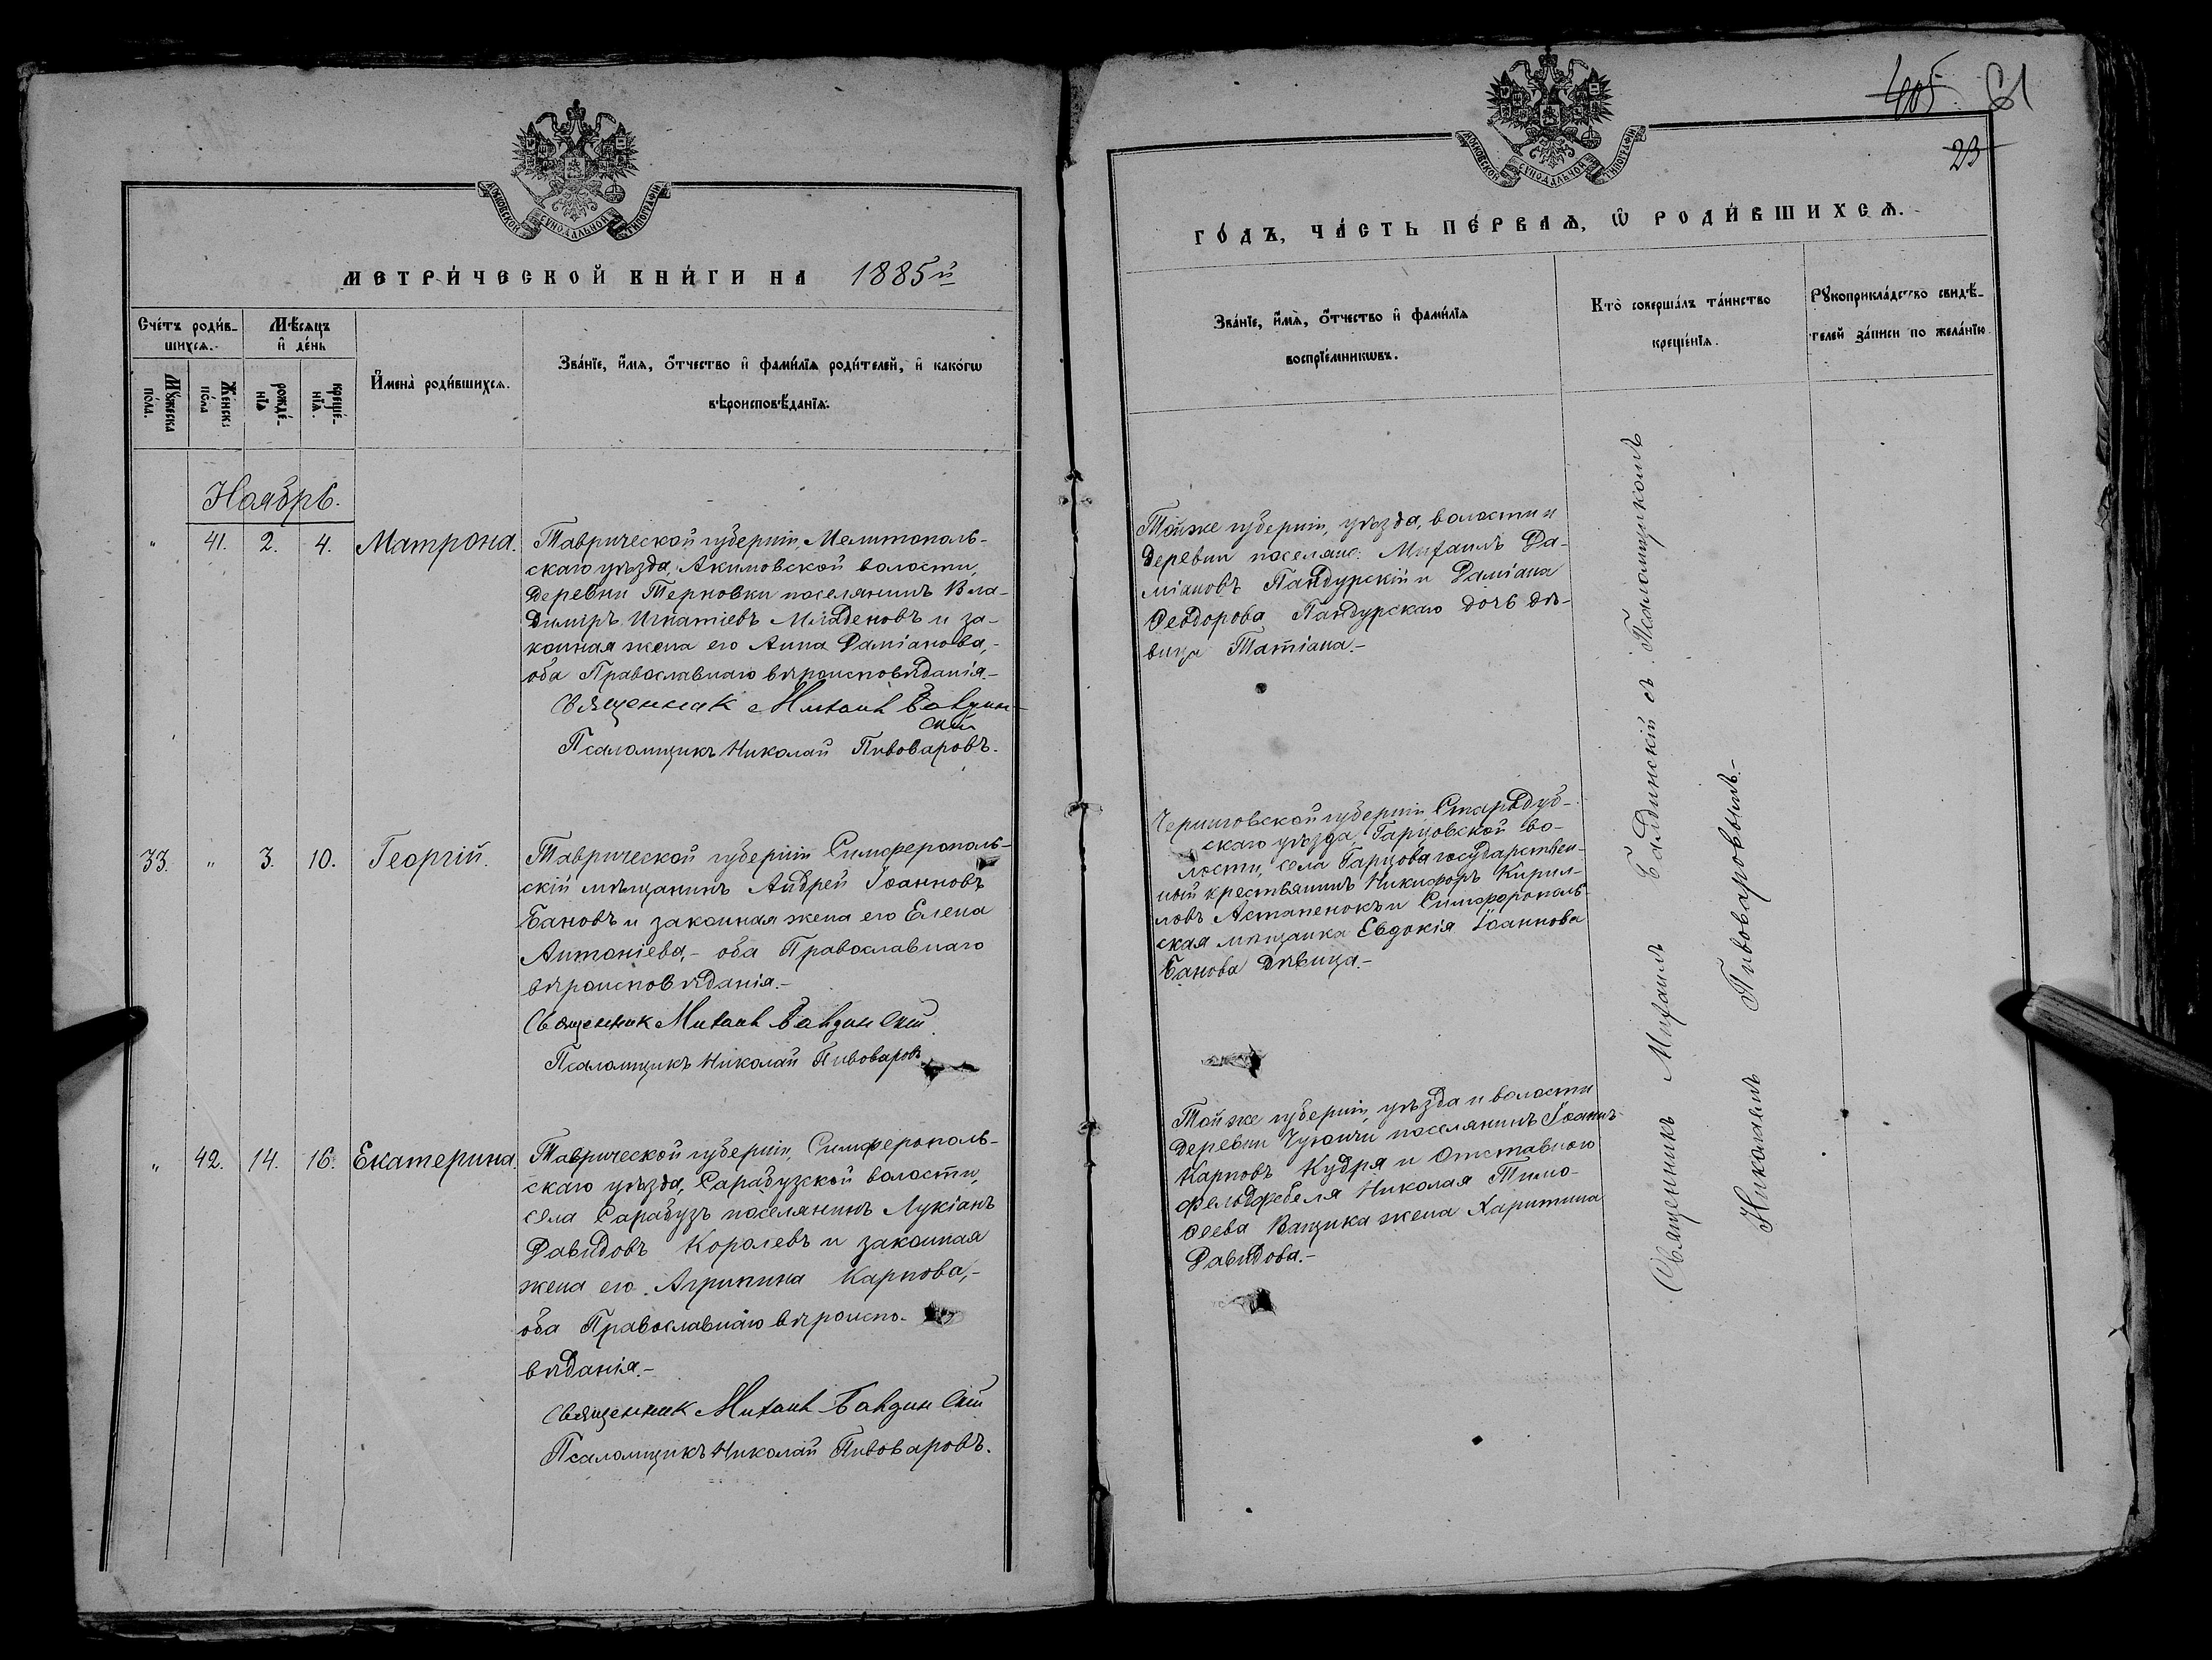 МОСКОВСКОЙ СѴНОДАЛЬНОЙ ТИПОГРАФІИ
МЕТРИ́ЧЕСКОЙ КНИ́ГИ НА 1885й
Сче́тъ роди́в-
шихсѧ.
Мѣ́сяцъ
и҆ де́нь
Мꙋ́жеска
по́ла.
Же́нска
по́ла
рожде́-
нїѧ
креще́-
нїѧ.
И҆мена̀ роди́вшихсѧ.
Зва́нїе, и҆́мѧ, ѻ҆́тчество и҆ фами́лїѧ роди́телей, и҆ како́гѡ
вѣроисповѣ́данїѧ.
Ноябрь.
" 41. 2. 4. Матрона.
Таврической губерніи, Мелитополь-
скаго уѣзда, Акимовской волости,
деревни Терновки поселянинъ Вла-
диміръ Игнатіевъ Младеновъ и за-
конная жена его Анна Даміанова,-
оба Православнаго вѣроисповѣданія.-
Священник Михаил Балдин-
ский
Псаломщикъ Николай Пивоваровъ.
33. " 3. 10. Георгій.
Таврической губерніи Симферополь-
скій мѣщанинъ Андрей Іоанновъ
Бановъ и законная жена его Елена
Антоніева,- оба Православнаго
вѣроисповѣданія.-
Священник Михаил Балдинский
Псаломщикъ Николай Пивоваровъ
" 42. 14. 16. Екатерина.
Таврической губерніи, Симферополь-
скаго уѣзда, Сарабузской волости,
села Сарабузъ поселянинъ Лукіанъ
Давидовъ Королевъ и законная
жена его Агрипина Карпова,-
оба Православнаго вѣроиспо-
вѣданія.-
Священник Михаил Балдинский
Псаломщикъ Николай Пивоваровъ.
405. 61
23
МОСКОВСКОЙ СѴНОДАЛЬНОЙ ТИПОГРАФІИ
ГО́ДЪ, ЧА́СТЬ ПЕ́РВАѦ, Ѡ҆ РОДИ́ВШИХСѦ.
Зва́нїе, и҆́мѧ, ѻ҆́тчество и҆ фами́лїѧ
воспрїе́мникѡвъ.
Кто̀ соверша́лъ та́инство
креще́нїѧ.
Рꙋкоприкла́дство свидѣ́-
телей за́писи по жела́нїю
Той же губерніи, уѣзда, волости и
деревни поселяне: Михаилъ Да-
міановъ Пандурскій и Даміана
Ѳеодорова Пандурскаго дочь дѣ-
вица Татіана.-
Черниговской губерніи Стародуб-
скаго уѣзда, Гарцовской во-
лости, села Гарцова государствен-
ный крестьянинъ Никифоръ Кирил-
ловъ Астапенокъ и Симферополь-
ская мѣщанка Евдокія Іоаннова
Банова дѣвица.-
Той же губерніи, уѣзда и волости
деревни Чуюнчи поселянинъ Іоаннъ
Карповъ Кудря и Отставного
фельдфебеля Николая Тимо-
ѳеева Ващика жена Харитина
Давидова.-
Священникъ Михаилъ Балдинскій съ Псаломщикомъ
Николаемъ Пивоваровымъ.-